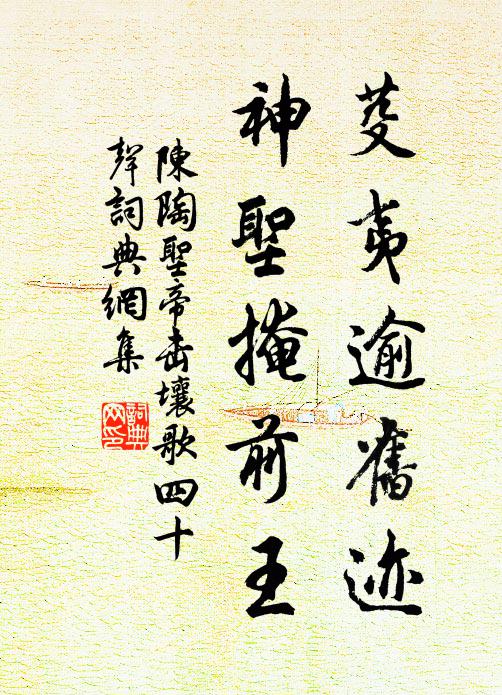 芟夷逾舊迹
神聖掩前王
陳陶聖帝击壤歌四十
聲詞典網集
詞典网印